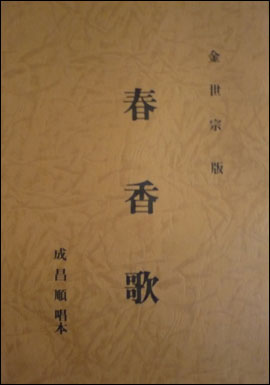 金世宗版
春香歌
成昌順唱本